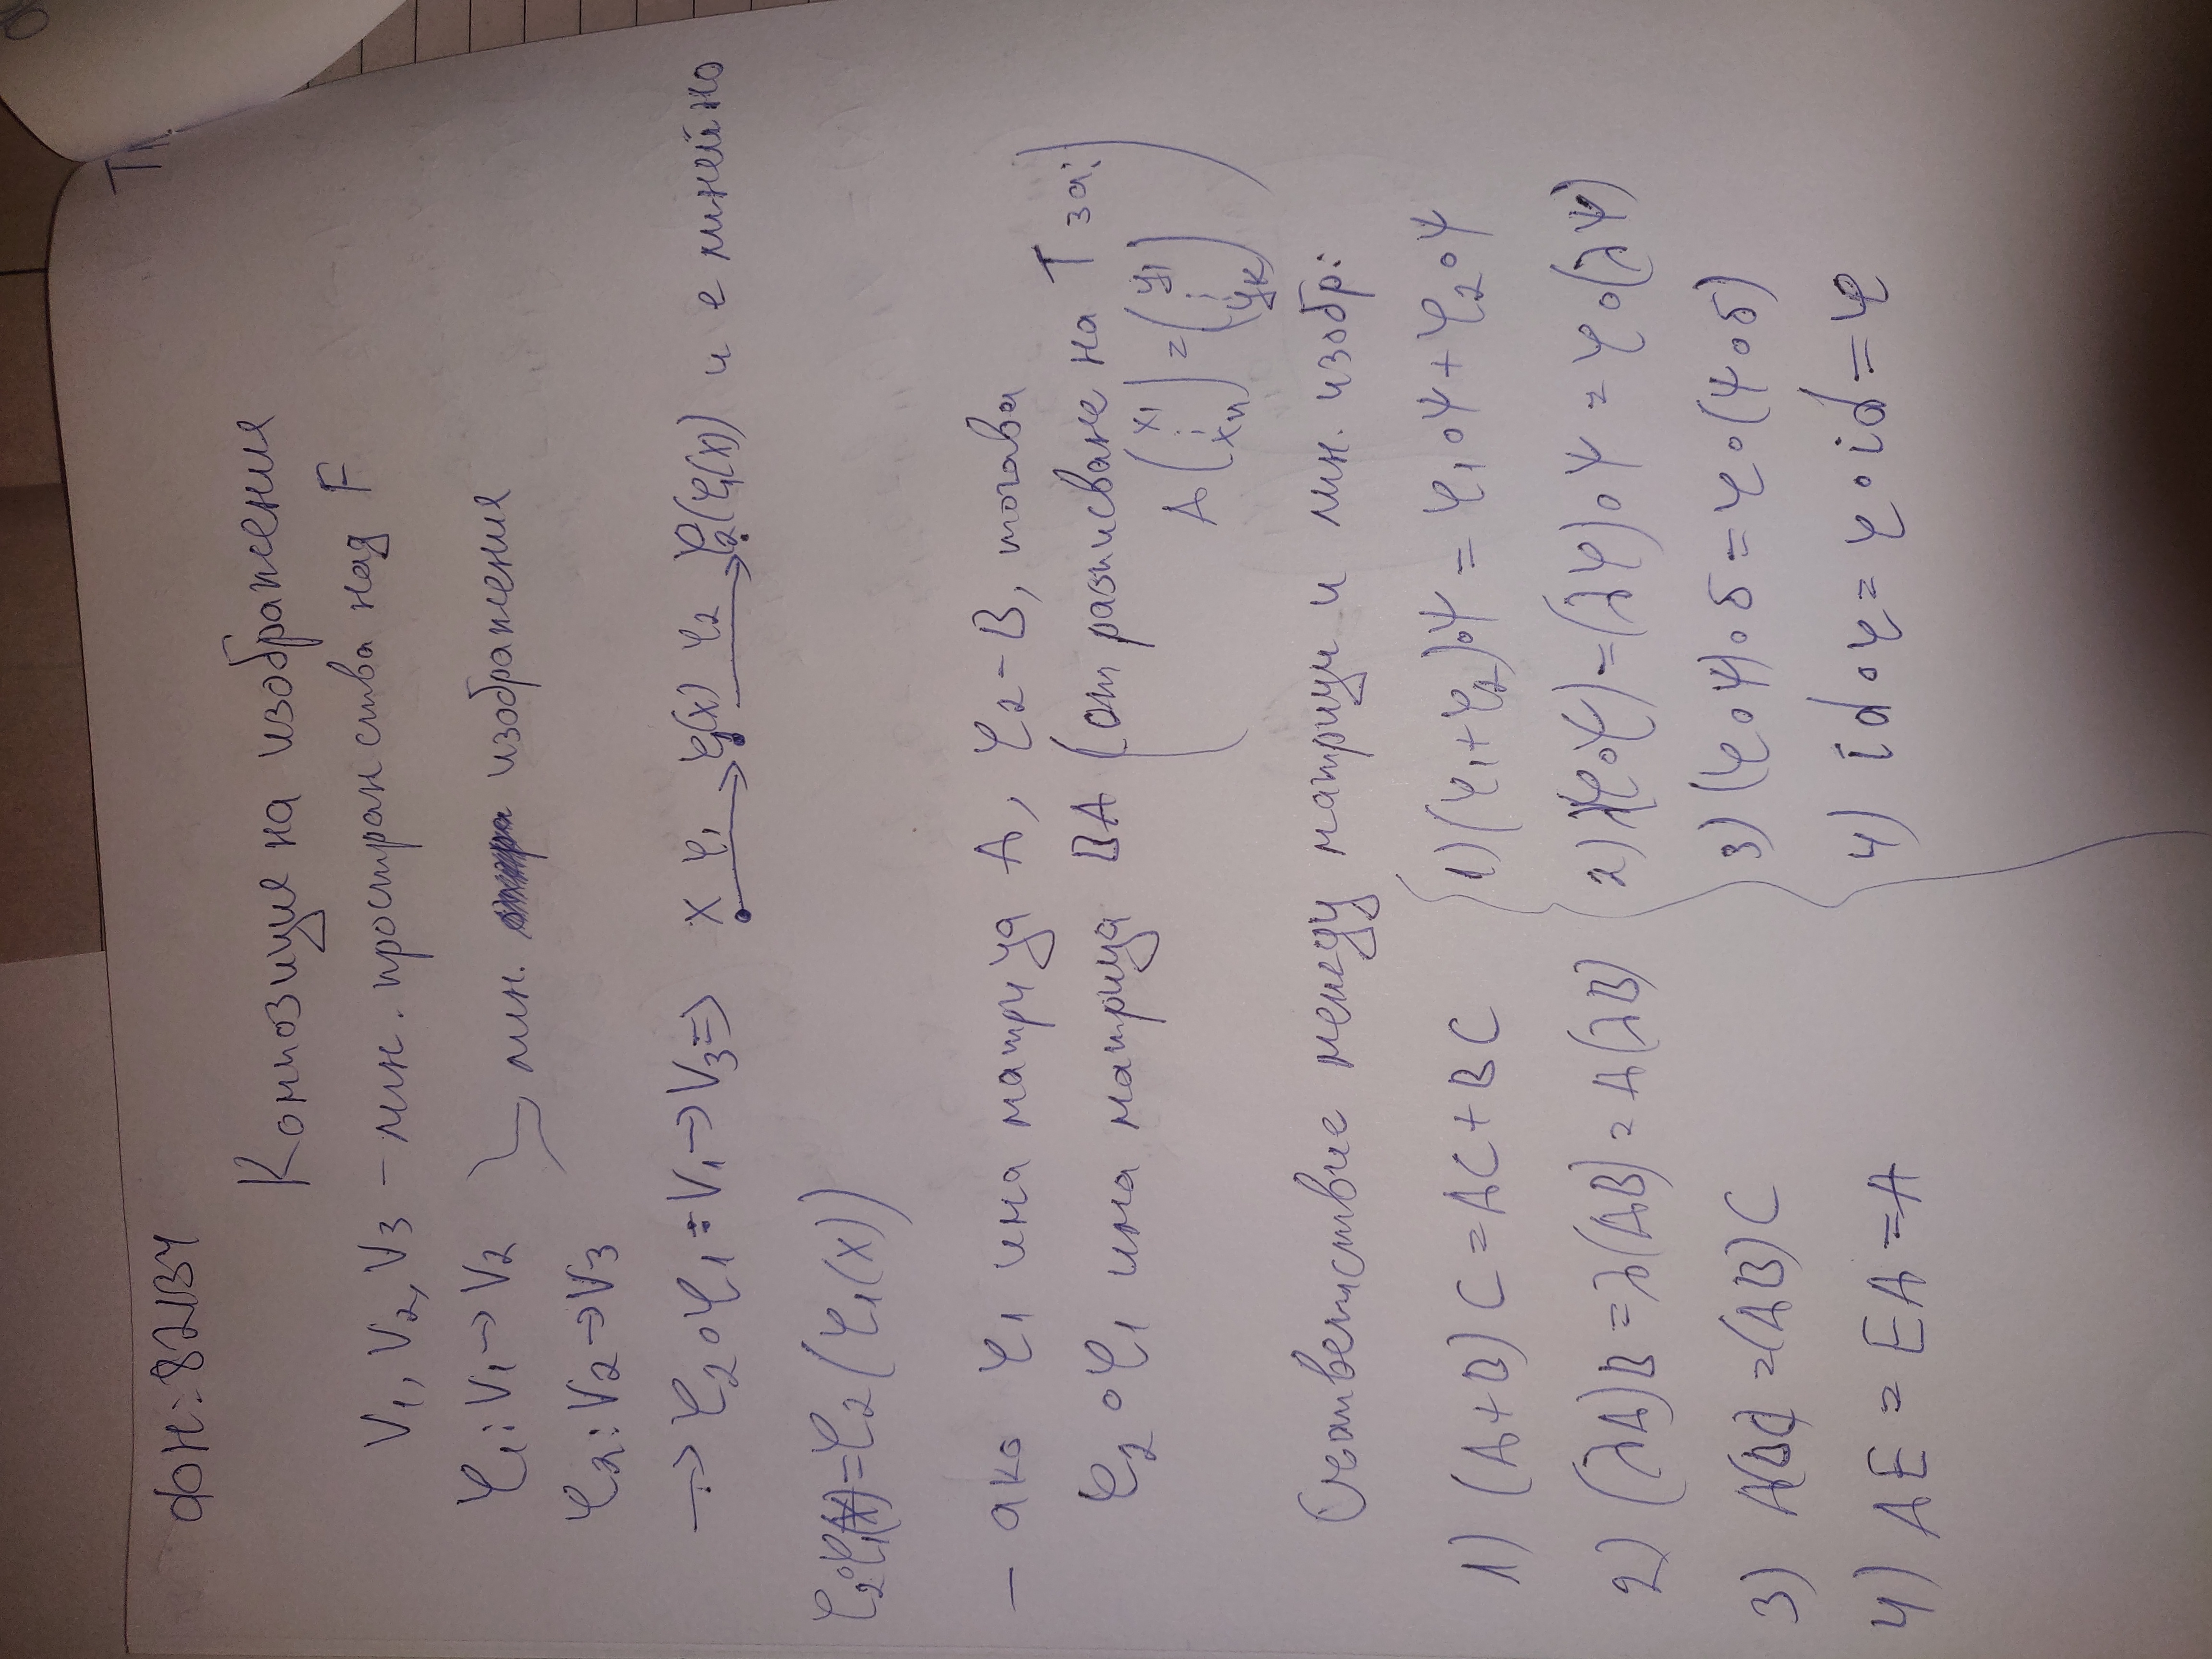 ФН: 82134
Композиция на изображения
V₁, V₂, V₃ - лин. пространства над F
φ₁: V₁ → V₂
лин. изображения
φ₂: V₂ → V₃
→ φ₂∘φ₁ : V₁ → V₃ => x φ₁ φ₁(x) φ₂ φ₂(φ₁(x)) и е линейно
φ₂∘φ₁(x) = φ₂(φ₁(x))
- ако φ₁ има матрица A, φ₂ - B, тогава
φ₂∘φ₁ има матрица BA (от разписване на T за:
A (x₁ ⋮ xₙ) = (y₁ ⋮ yₖ))
Съответствие между матрици и лин. изобр:
1) (A+B)C = AC + BC
2) (λA)B = λ(AB) = A(λB)
3) A(BC) = (AB)C
4) AE = EA = A
1) (φ₁+φ₂)∘ψ = φ₁∘ψ + φ₂∘ψ
2) λ(φ∘ψ) = (λφ)∘ψ = φ∘(λψ)
3) (φ∘ψ)∘δ = φ∘(ψ∘δ)
4) id∘φ = φ∘id = φ